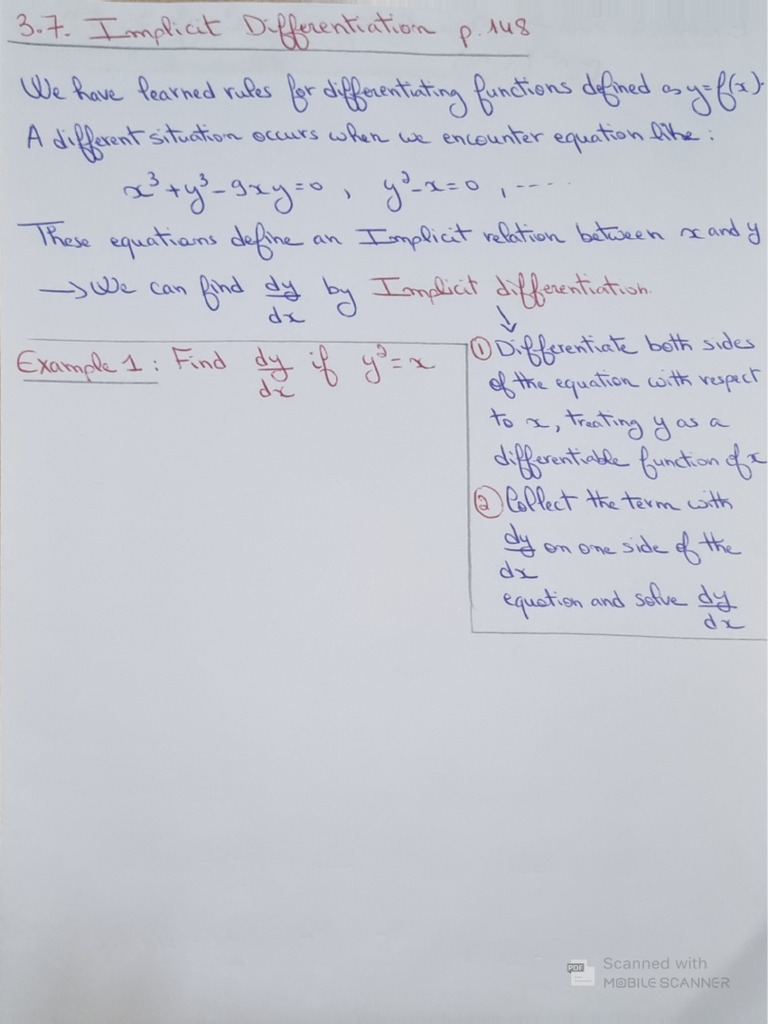 3.7. Implicit Differentiation p.148
We have learned rules for differentiating functions defined as y=f(x).
A different situation occurs when we encounter equation like:
x³+y³-9xy=0, y²-x=0, ----
These equations define an Implicit relation between x and y
→ We can find dy/dx by Implicit differentiation.
↓
Example 1: Find dy/dx if y²=x
① Differentiate both sides
of the equation with respect
to x, treating y as a
differentiable function of x
② Collect the term with
dy/dx on one side of the
equation and solve dy/dx
PDF
Scanned with
MOBILE SCANNER